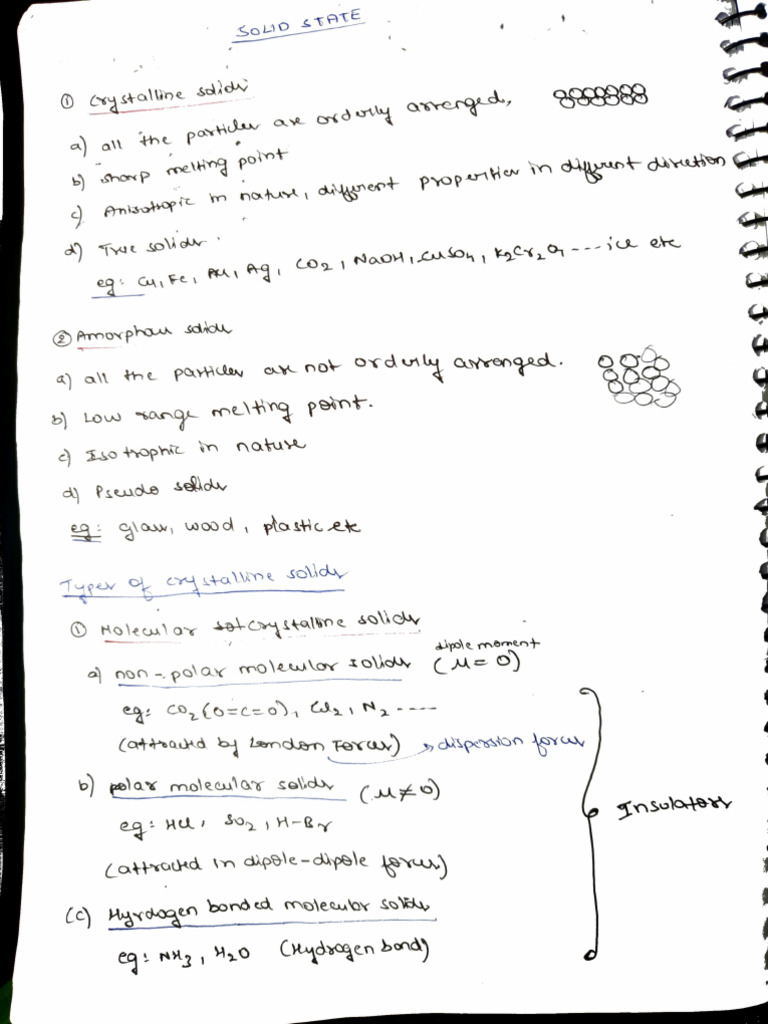 SOLID STATE
① Crystalline solids
a) all the particles are orderly arranged,
b) sharp melting point
c) Anisotropic in nature, different properties in different direction
d) True solids.
eg: Cu, Fe, Au, Ag, CO2, NaOH, CuSO4, K2Cr2O7 ---- ice etc
② Amorphous solids
a) all the particles are not orderly arranged.
b) Low range melting point.
c) Isotrophic in nature
d) Pseudo solids
eg: glass, wood, plastic etc
Types of crystalline solids
① Molecular crystalline solids
dipole moment
a) non-polar molecular solids (μ = 0)
eg: CO2 (O=C=O), Cl2, N2 ----
(attracted by London Forces) → dispersion forces
b) polar molecular solids (μ ≠ 0)
eg: HCl, SO2, H-Br
Insulators
(attracted in dipole-dipole forces)
(c) Hyrdogen bonded molecular solids
eg: NH3, H2O (Hydrogen bond)